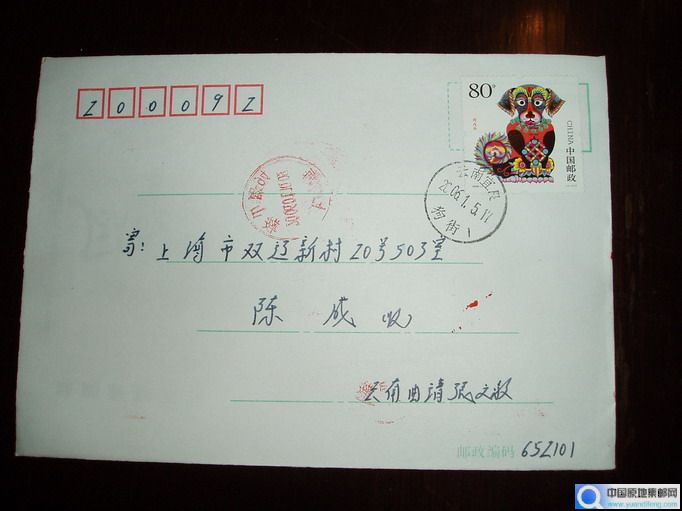 200092
80分
丙戌年
中国邮政
CHINA
云南宜良
2006.1.5.11
狗街
寄:上海市双辽新村20号503室
陈 成 收
云南曲靖张文敏
邮政编码 652101
中国原地集邮网
www.yuandifeng.com